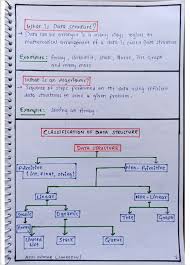 What is Data Structure?
→ Data can be arranged in many ways, logical or
mathematical arrangement of a data is called Data Structure
Examples: Array, Linkedlist, Stack, Queue, Tree, Graph
and many more
What is an Algorithm?
→ Sequence of steps performed on the data using efficient
data structures to solve a given problem.
Example: Sorting an Array.
CLASSIFICATION OF DATA STRUCTURE
DATA STRUCTURE
Primitive
(int, float, string)
Non-Primitive
Linear
Non-Linear
Static
Dynamic
Tree
Graph
Array
Linked
List
Stack
Queue
(LINKEDIN)